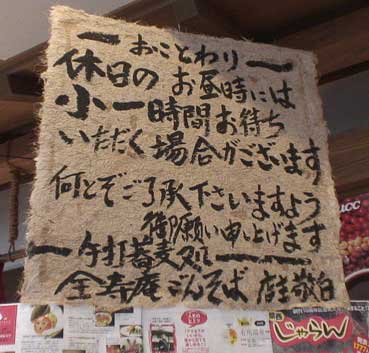 ー おことわり ー
休日の お昼時には
小一時間お待ち
いただく場合がございます
何とぞご了承下さいますよう
御願い申し上げます
ー 手打蕎麦処 ー
全寿庵ごんそば 店主敬白
ucc
じゃらん